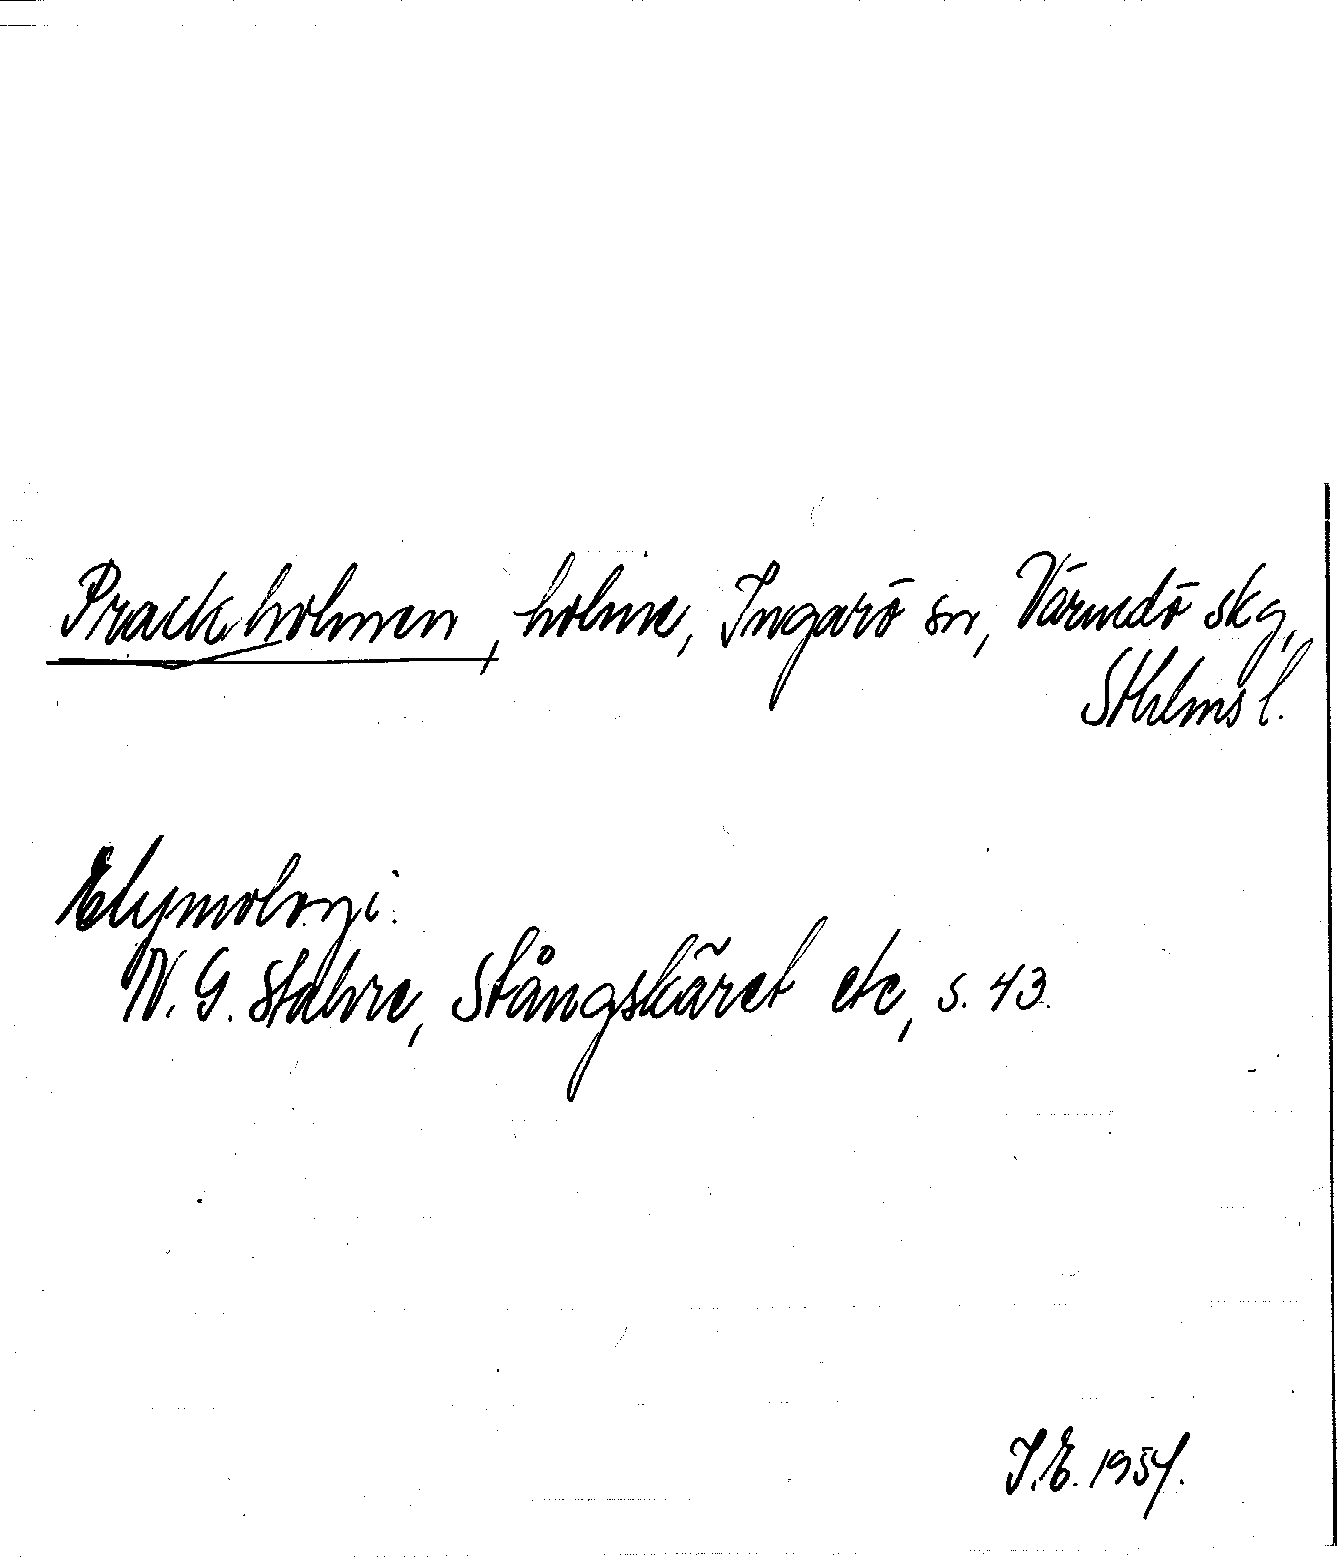 Prackholmen, holme, Ingarö sn, Värmdö skg,
Sthlms l.
Etymologi.
N. G. Stahre, Stångskäret etc, s. 43.
I.E. 1954.